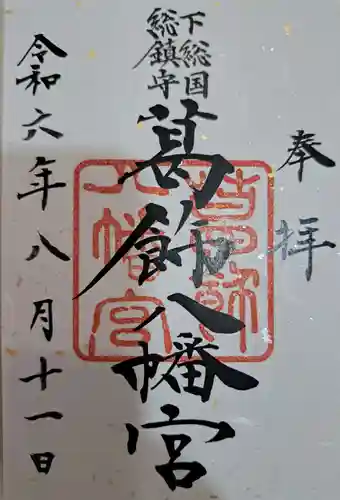 奉拝
下総国
総鎮守
葛飾八幡宮
令和六年八月十一日
葛飾
八幡宮